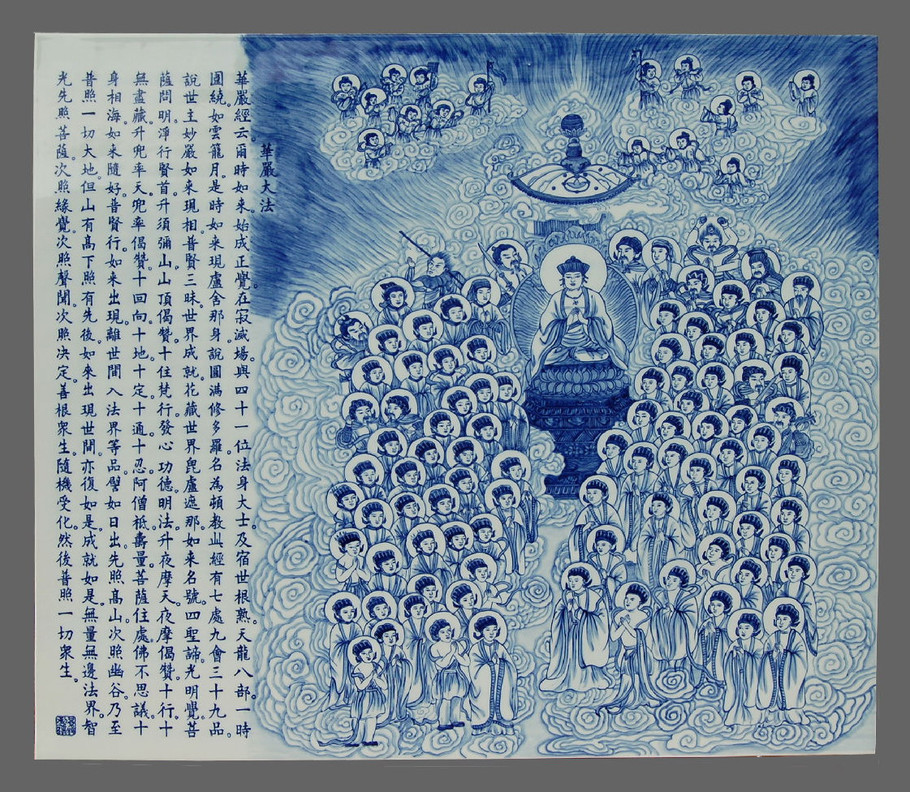 華嚴大法
華嚴經云。爾時如來。始成正覺。在寂滅場。與四十一位法身大士。及宿世根熟。天龍八部一時
圍繞。如雲籠月。是時如來。現盧舍那身。說圓滿修多羅。名為頓教。此經有七處九會三十九品。
說世主妙嚴。如來現相。普賢三昧。世界成就。花藏世界。毘盧遮那。如來名號。四聖諦。光明覺。菩
薩問明。淨行。賢首。升須彌山。山頂偈贊。十住。梵行。發心功德。明法。升夜摩天。夜摩偈贊。十行。十
無盡藏。升兜率天。兜率偈贊。十回向。十地。十定。十通。十忍。阿僧祗。壽量。菩薩住處。佛不思議。十
身相海。如來隨好。普賢行。如來出現。離世間。入法界等品。譬如日出。先照高山。次照幽谷。乃至
普照一切大地。但山有高下。照有先後。如來出現世間。亦復如是。成就如是。無量無邊法界。智
光先照菩薩。次照緣覺。次照聲聞。次照决定。善根衆生。隨機受化。然後普照一切衆生。